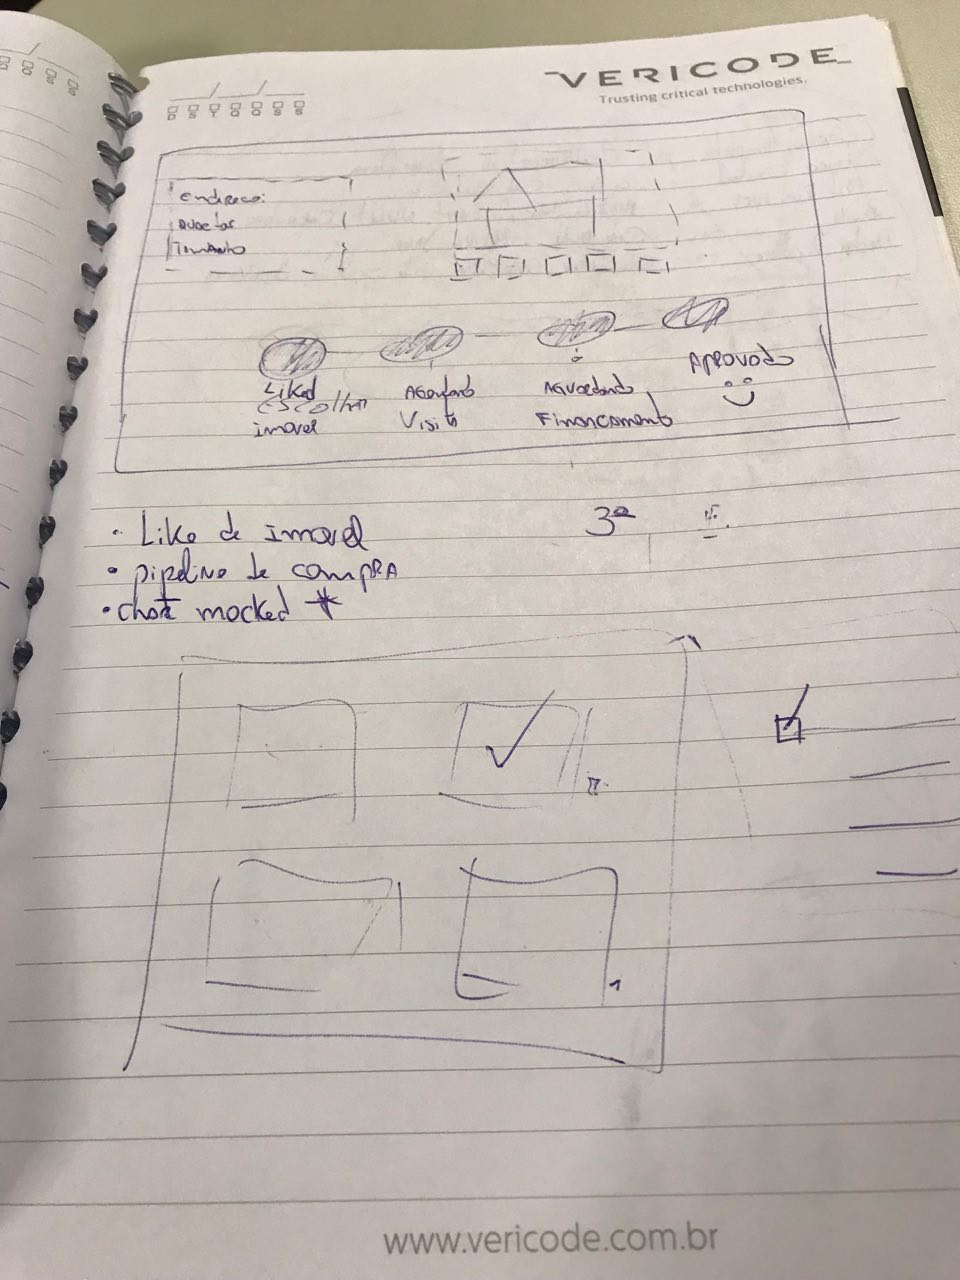 VERICODE
Trusting critical technologies.
D S T Q Q S S
Endereco:
Quartos
Tamanho
Liked
Escolher
imovel
Agendand
Visita
Aguardando
Financiamento
Aprovado
• Like de imovel
• pipeline de compra
• chat mocked *
3ª
www.vericode.com.br